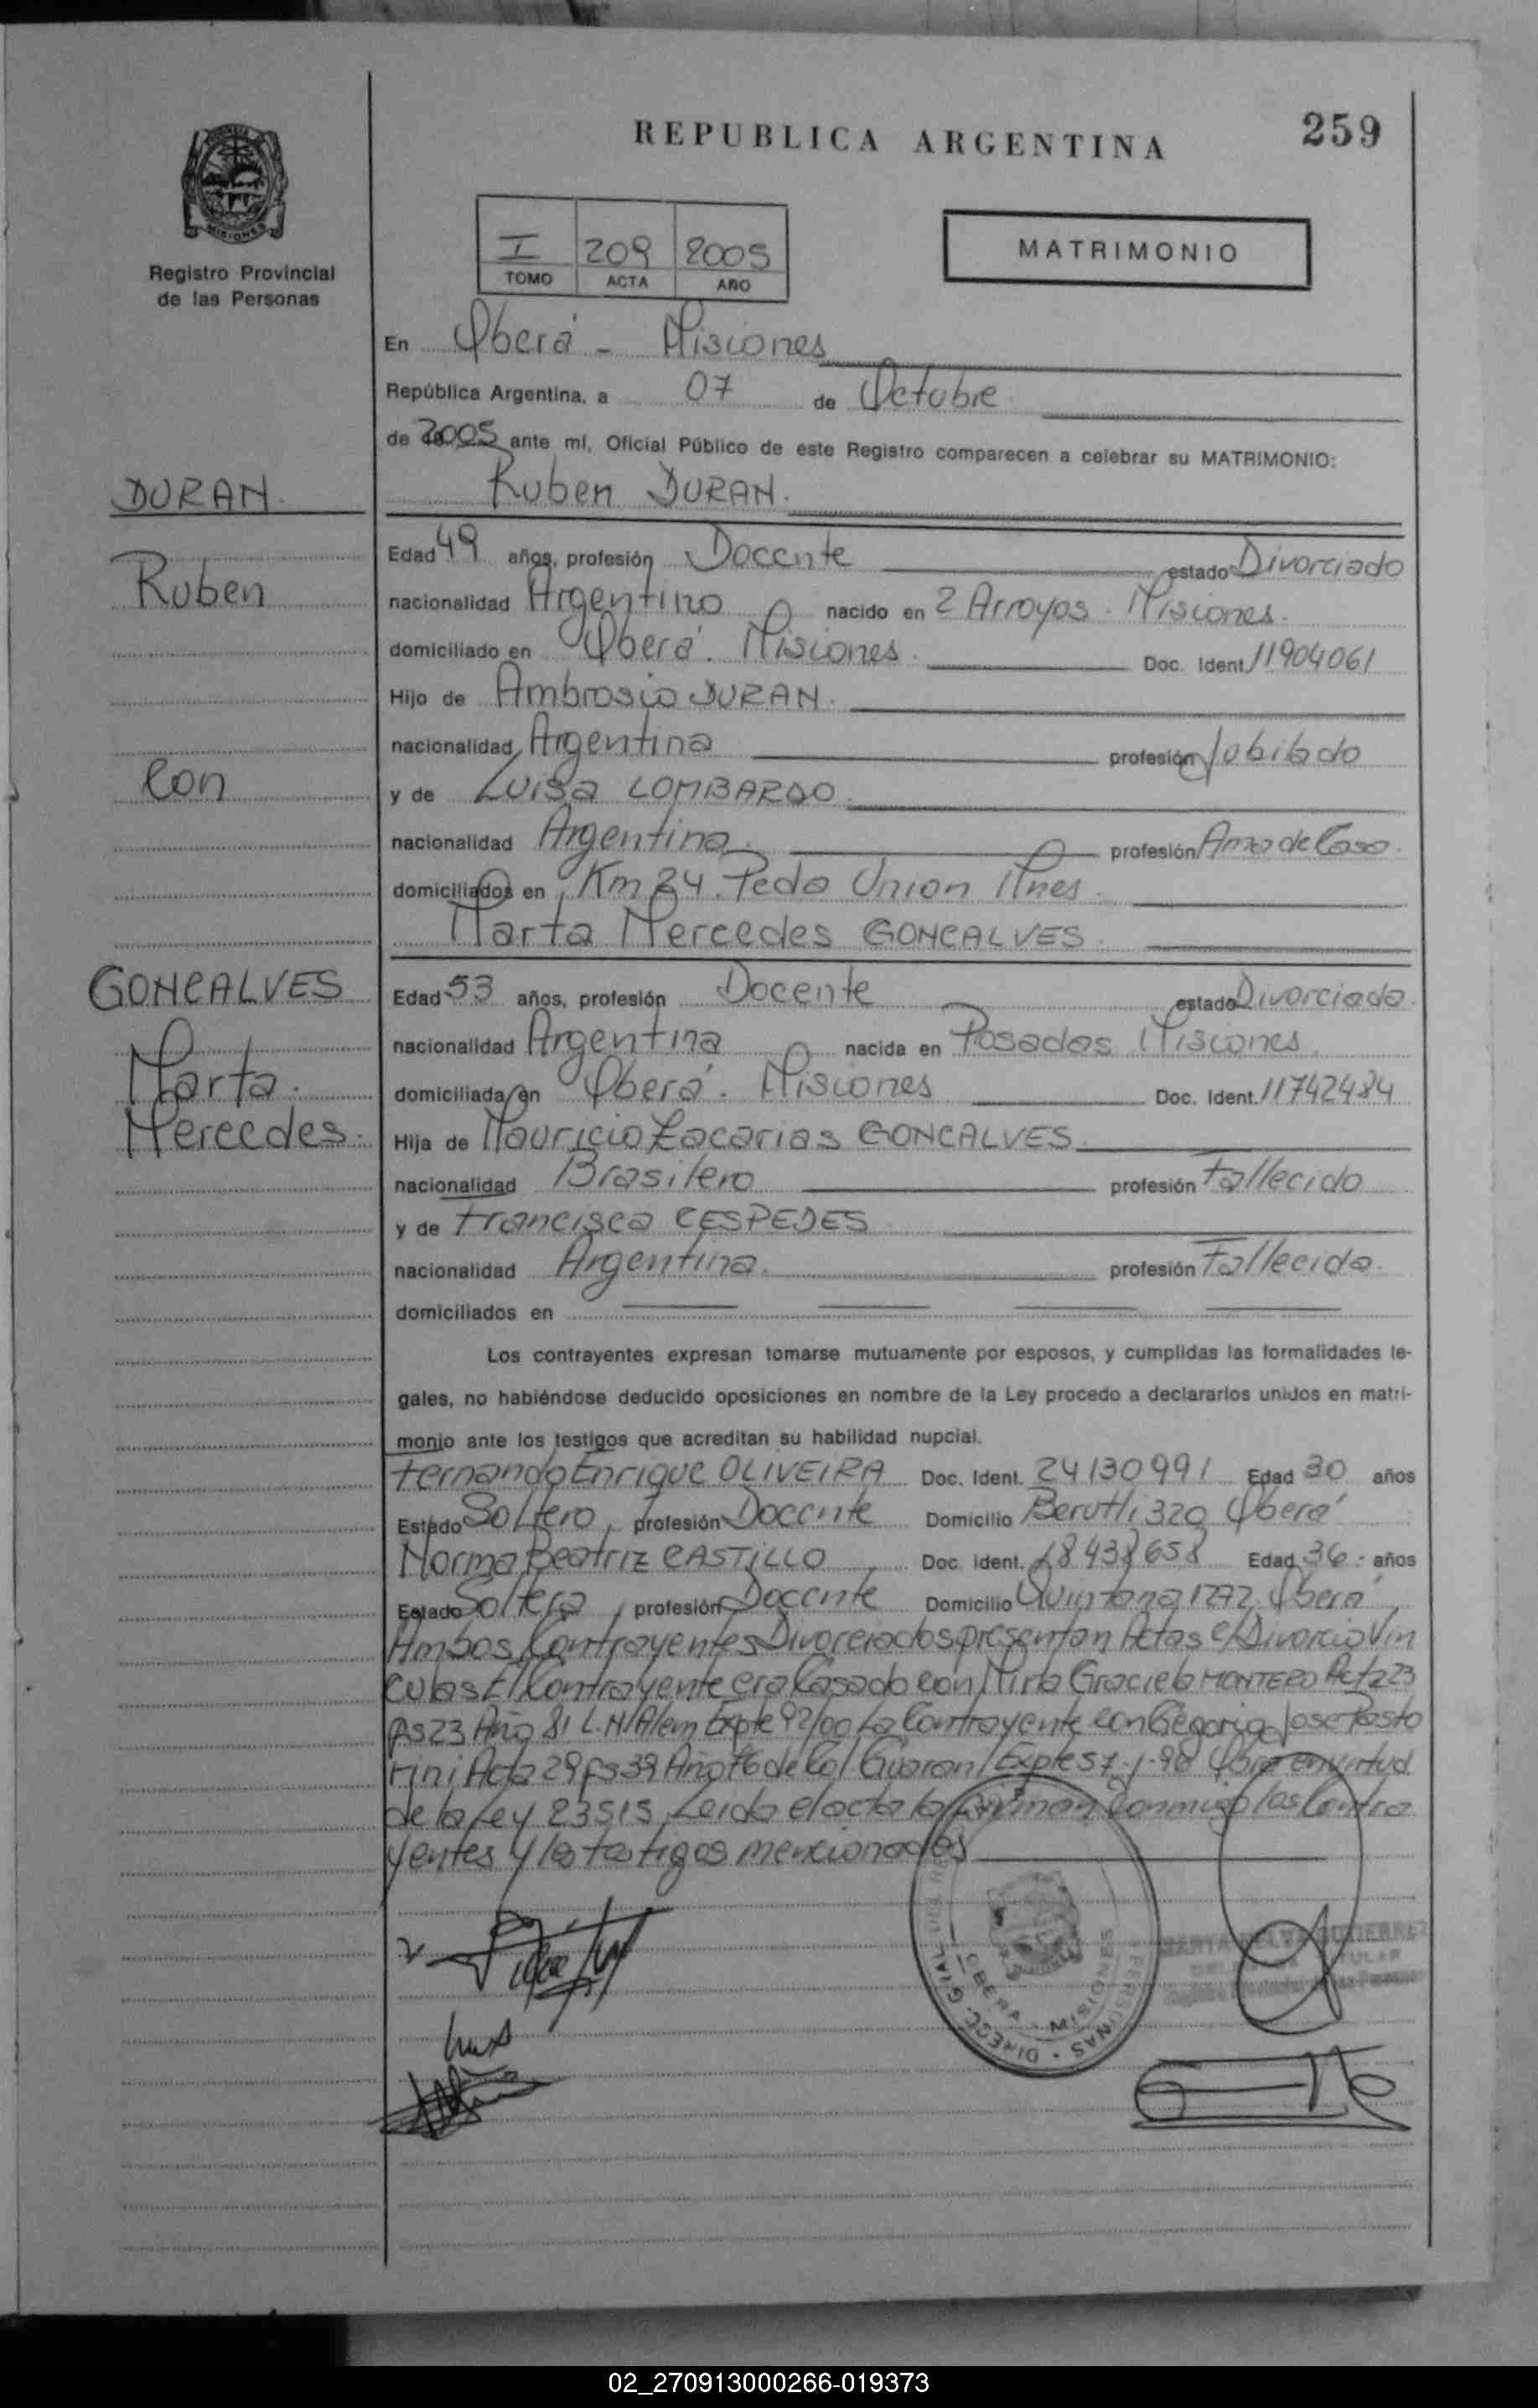 REPUBLICA ARGENTINA
259
MISIONES
Registro Provincial
de las Personas
I 209 2005
TOMO ACTA AÑO
MATRIMONIO
En Oberá - Misiones
República Argentina, a 07 de Octubre
de 2005 ante mí, Oficial Público de este Registro comparecen a celebrar su MATRIMONIO:
DURAN.
Ruben DURAN.
Edad 49 años, profesión Docente estado Divorciado
Ruben
nacionalidad Argentino nacido en 2 Arroyos. Misiones.
domiciliado en Oberá. Misiones. Doc. Ident. 11904061
Hijo de Ambrosio DURAN.
nacionalidad Argentina profesión Jubilado
Con
y de Luisa LOMBARDO.
nacionalidad Argentina. profesión Ama de Casa.
domiciliados en Km 24. Peda Union Mnes.
Marta Mercedes GONCALVES.
GONCALVES
Edad 53 años, profesión Docente estado Divorciada.
nacionalidad Argentina nacida en Posadas Misiones.
Marta.
domiciliada en Oberá. Misiones Doc. Ident. 11742484
Mercedes.
Hija de Mauricio Zacarias GONCALVES.
nacionalidad Brasilero profesión Fallecido
y de Francisca CESPEDES.
nacionalidad Argentina. profesión Fallecida.
domiciliados en
Los contrayentes expresan tomarse mutuamente por esposos, y cumplidas las formalidades le-
gales, no habiéndose deducido oposiciones en nombre de la Ley procedo a declararlos unidos en matri-
monio ante los testigos que acreditan su habilidad nupcial.
Fernando Enrique OLIVEIRA Doc. Ident. 24130991 Edad 30 años
Estado Soltero, profesión Docente Domicilio Berutti 320 Oberá
Norma Beatriz CASTILLO Doc. Ident. 18438658 Edad 36. años
Estado Soltera, profesión Docente Domicilio Quintana 1272 Oberá
Ambos Contrayentes Divorciados presentan Actas c/Divorcio Vin
culas El Contrayente era Casado con Mirta Graciela MONTERO Acta 23
Fs 23 Año 81 L.N/Alem Expte 92/00 La Contrayente con Jose Pasto
rini Acta 29 Fs 39 Año 76 de Col Guarani Expte 57-J-98 en virtud
de la Ley 23515 Leida el acta la firman conmigo los Contra
yentes y los testigos mencionados
OBERA - MISIONES
PERSONAS
02_270913000266-019373